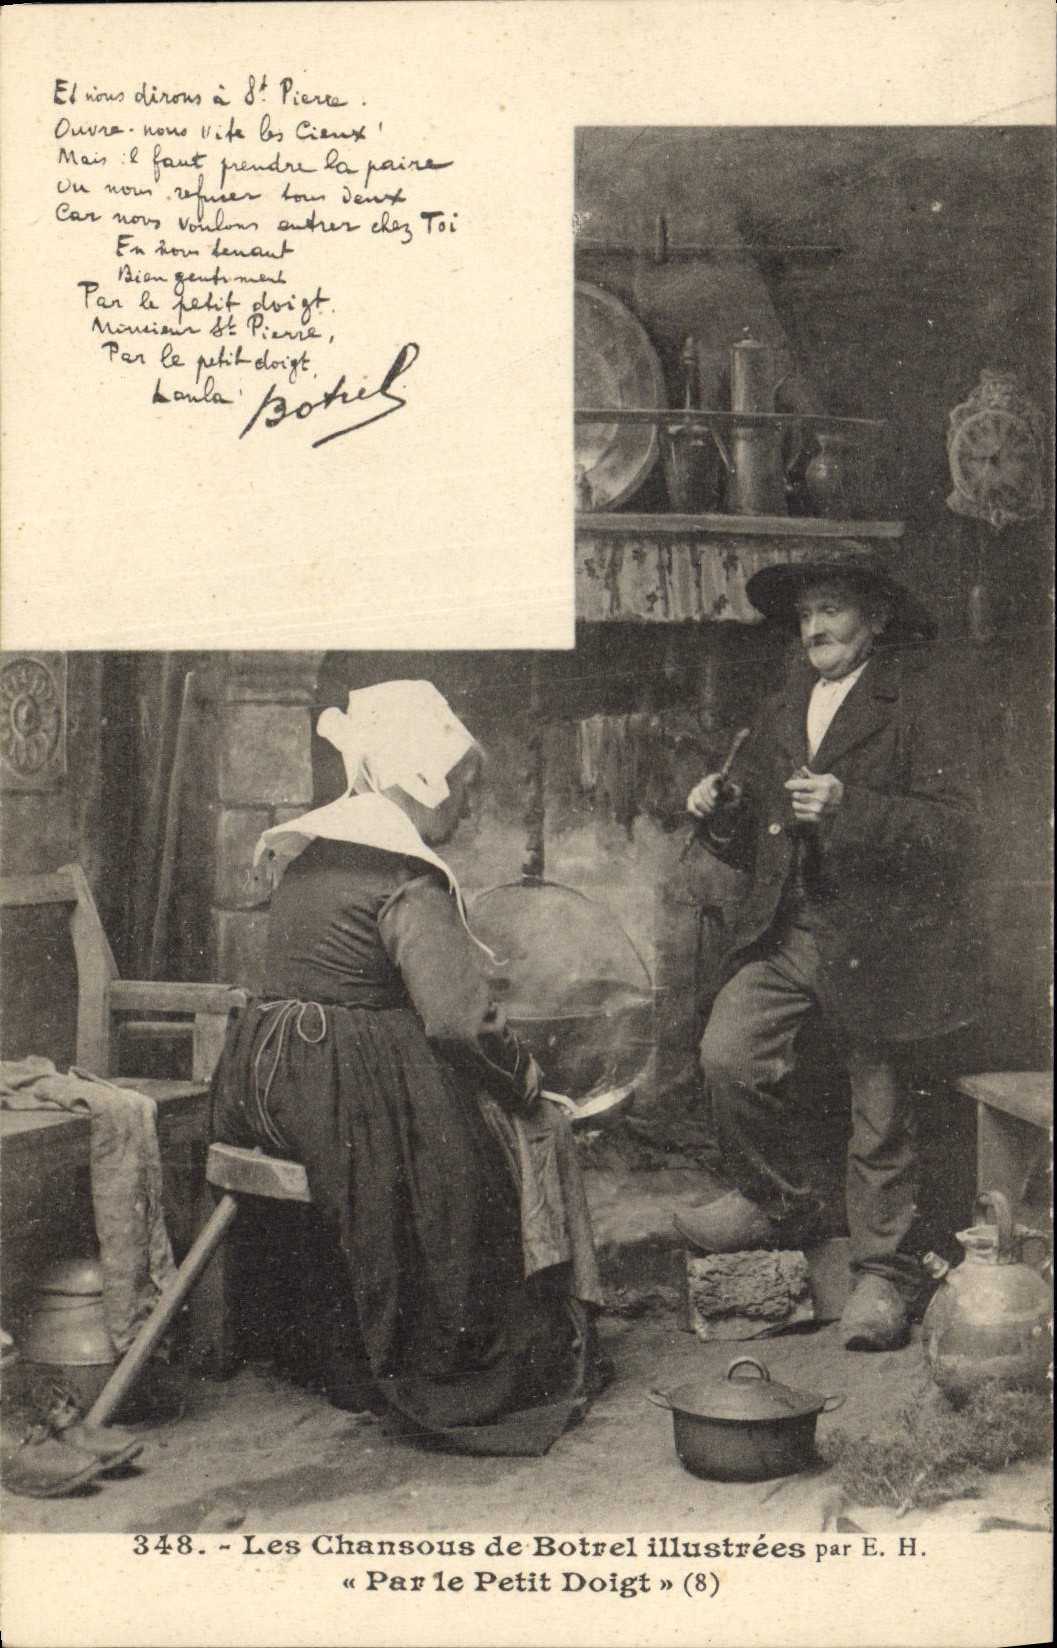 Et nous dirons à St. Pierre.
Ouvre-nous vite les Cieux!
Mais il faut prendre la paire
Ou nous refuser tous deux
Car nous voulons entrer chez Toi
En nous tenant
Bien gentiment
Par le petit doigt.
Monsieur St Pierre,
Par le petit doigt,
Lonla!
Botrel
348. - Les Chansous de Botrel illustrées par E. H.
« Par le Petit Doigt » (8)